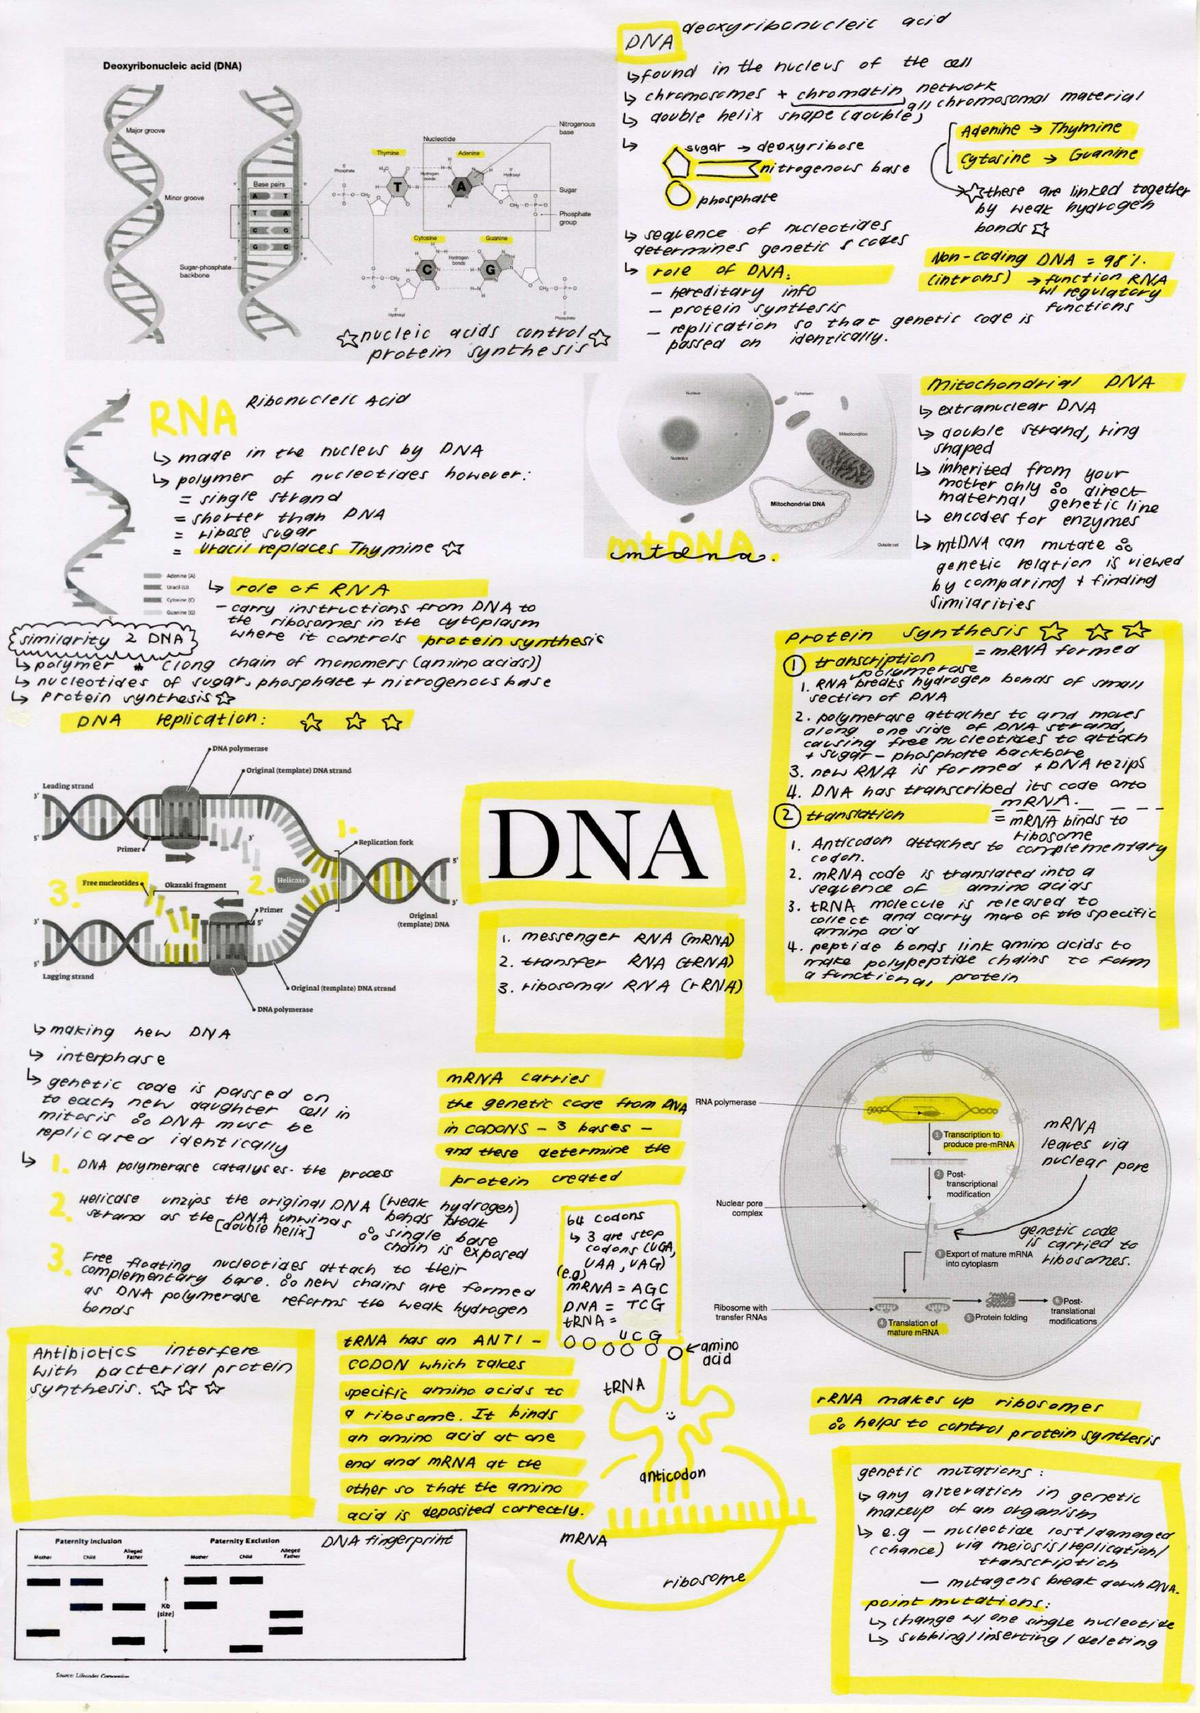 Deoxyribonucleic acid (DNA)
Major groove
Minor groove
Sugar-phosphate
backbone
Base pairs
A T
T A
C G
G C
Nucleotide
Nitrogenous
base
Thymine
Adenine
Phosphate
Hydrogen
bonds
T
A
Sugar
Phosphate
group
Cytosine
Guanine
Hydrogen
bonds
C
G
Hydroxyl
Phosphate
☆nucleic acids control☆
protein synthesis
DNA deoxyribonucleic acid
↳found in the nucleus of the cell
↳ chromosomes + chromatin network
all chromosomal material
↳ double helix shape (double)
↳ sugar → deoxyribose
nitrogenous base
phosphate
Adenine → Thymine
Cytosine → Guanine
☆these are linked together
by weak hydrogen
bonds☆
↳ sequence of nucleotides
determines genetic s codes
↳ role of DNA:
- hereditary info
- protein synthesis
- replication so that genetic code is
passed on identically.
Non-coding DNA = 98%.
(introns) → function RNA
w/ regulatory
functions
RNA Ribonucleic Acid
↳ made in the nucleus by DNA
↳ polymer of nucleotides however:
= single strand
= shorter than DNA
= ribose sugar
= Uracil replaces Thymine ☆
Adenine (A)
Uracil (U)
Cytosine (C)
Guanine (G)
↳ role of RNA
- carry instructions from DNA to
the ribosomes in the cytoplasm
where it controls protein synthesis
similarity 2 DNA
↳polymer * (long chain of monomers (amino acids))
↳ nucleotides of sugar, phosphate + nitrogenous base
↳ protein synthesis☆
Nucleus
Nucleolus
Cytoplasm
Mitochondrion
Mitochondrial DNA
Outside cell
mtDNA
mtdna.
Mitochondrial DNA
↳ extranuclear DNA
↳ double strand, ring
shaped
↳ inherited from your
mother only ∴ direct
maternal genetic line
↳ encodes for enzymes
↳ mtDNA can mutate ∴
genetic relation is viewed
by comparing + finding
similarities
DNA replication: ☆ ☆ ☆
DNA polymerase
Original (template) DNA strand
Leading strand
3'
5'
Primer
3'
1.
Replication fork
2.
Helicase
5'
3'
3.
Free nucleotides
Okazaki fragment
Primer
5'
Original
(template) DNA
3'
5'
Lagging strand
Original (template) DNA strand
DNA polymerase
DNA
1. messenger RNA (mRNA)
2. transfer RNA (tRNA)
3. ribosomal RNA (rRNA)
Protein synthesis ☆ ☆ ☆
① transcription = mRNA formed
polymerase
1. RNA breaks hydrogen bonds of small
section of DNA
2. polymerase attaches to and moves
along one side of DNA strand,
causing free nucleotides to attach
+ sugar-phosphate backbone
3. new RNA is formed + DNA rezips
4. DNA has transcribed its code onto
mRNA.
② translation = mRNA binds to
ribosome
1. Anticodon attaches to complementary
codon.
2. mRNA code is translated into a
sequence of amino acids
3. tRNA molecule is released to
collect and carry more of the specific
amino acid
4. peptide bonds link amino acids to
make polypeptide chains to form
a functional protein
↳making new DNA
↳ interphase
↳ genetic code is passed on
to each new daughter cell in
mitosis ∴ DNA must be
replicated identically
↳ 1. DNA polymerase catalyses the process
2. Helicase unzips the original DNA (weak hydrogen)
strand as the DNA unwinds bonds break
[double helix] ∴ single base
chain is exposed
3. Free floating nucleotides attach to their
complementary base. ∴ new chains are formed
as DNA polymerase reforms the weak hydrogen
bonds
mRNA carries
the genetic code from DNA
in CODONS - 3 bases -
and these determine the
protein created
64 codons
↳ 3 are stop
codons (UGA,
UAA, UAG)
(e.g)
mRNA = AGC
DNA = TCG
tRNA =
UCG
RNA polymerase
① Transcription to
produce pre-mRNA
② Post-
transcriptional
modification
Nuclear pore
complex
③ Export of mature mRNA
into cytoplasm
Ribosome with
transfer RNAs
④ Translation of
mature mRNA
⑤ Protein folding
⑥ Post-
translational
modifications
mRNA
leaves via
nuclear pore
genetic code
is carried to
ribosomes.
Antibiotics interfere
with bacterial protein
synthesis. ☆☆☆
tRNA has an ANTI -
CODON which takes
specific amino acids to
a ribosome. It binds
an amino acid at one
end and mRNA at the
other so that the amino
acid is deposited correctly.
←amino
acid
tRNA
anticodon
mRNA
ribosome
rRNA makes up ribosomes
∴ helps to control protein synthesis
genetic mutations:
↳ any alteration in genetic
makeup of an organism
↳ e.g - nucleotide lost/damaged
(chance) via meiosis/replication/
transcription
- mutagens break down DNA.
point mutations:
↳ change w/ one single nucleotide
↳ subbing/inserting/deleting
Paternity Inclusion
Mother
Child
Alleged
Father
Kb
(size)
Paternity Exclusion
Mother
Child
Alleged
Father
DNA fingerprint